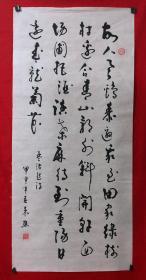 故人具鸡黍邀我至田家绿树
村边合青山郭外斜开轩面
场圃把酒话桑麻待到重阳日
还来就菊花
孟浩然诗